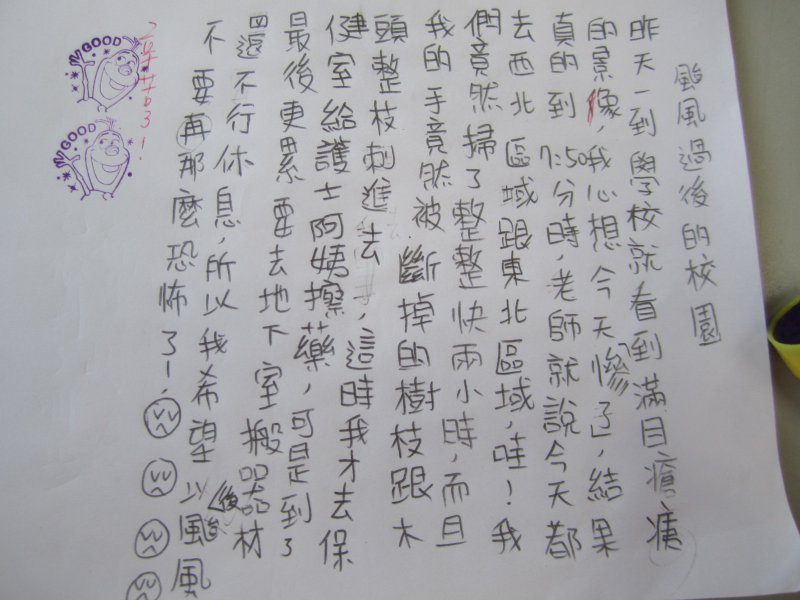 颱風過後的校園
昨天一到學校就看到滿目瘡痍
的景像,我心想今天慘了」,結果
真的到7:50分時,老師就說今天都
去西北區域跟東北區域,哇!我
們竟然掃了整整快兩小時,而且
我的手竟然被斷掉的樹枝跟木
頭整枝刺進去,這時我才去保
健室給護士阿姨擦藥,可是到了
最後更累要去地下室搬器材
還不行休息,所以我希望以後颱風
不要再那麼恐怖了!
GOOD
GOOD